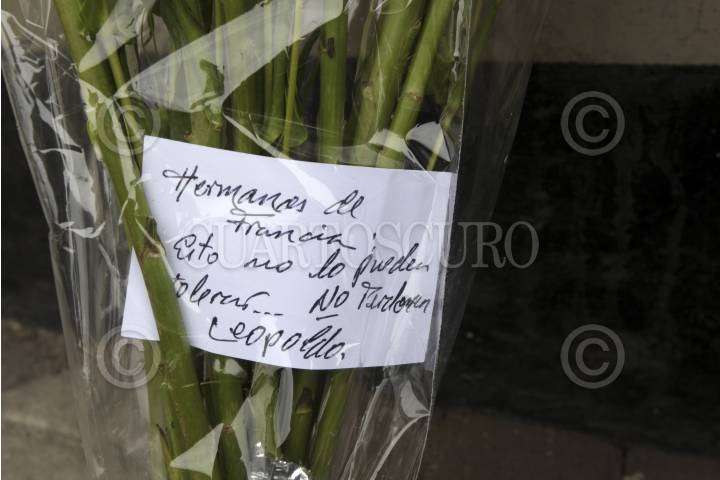 Hermanos de
Francia.
Esto no lo pueden
tolerar... No Perdonen
Leopoldo.
CUARTOSCURO
© © © ©